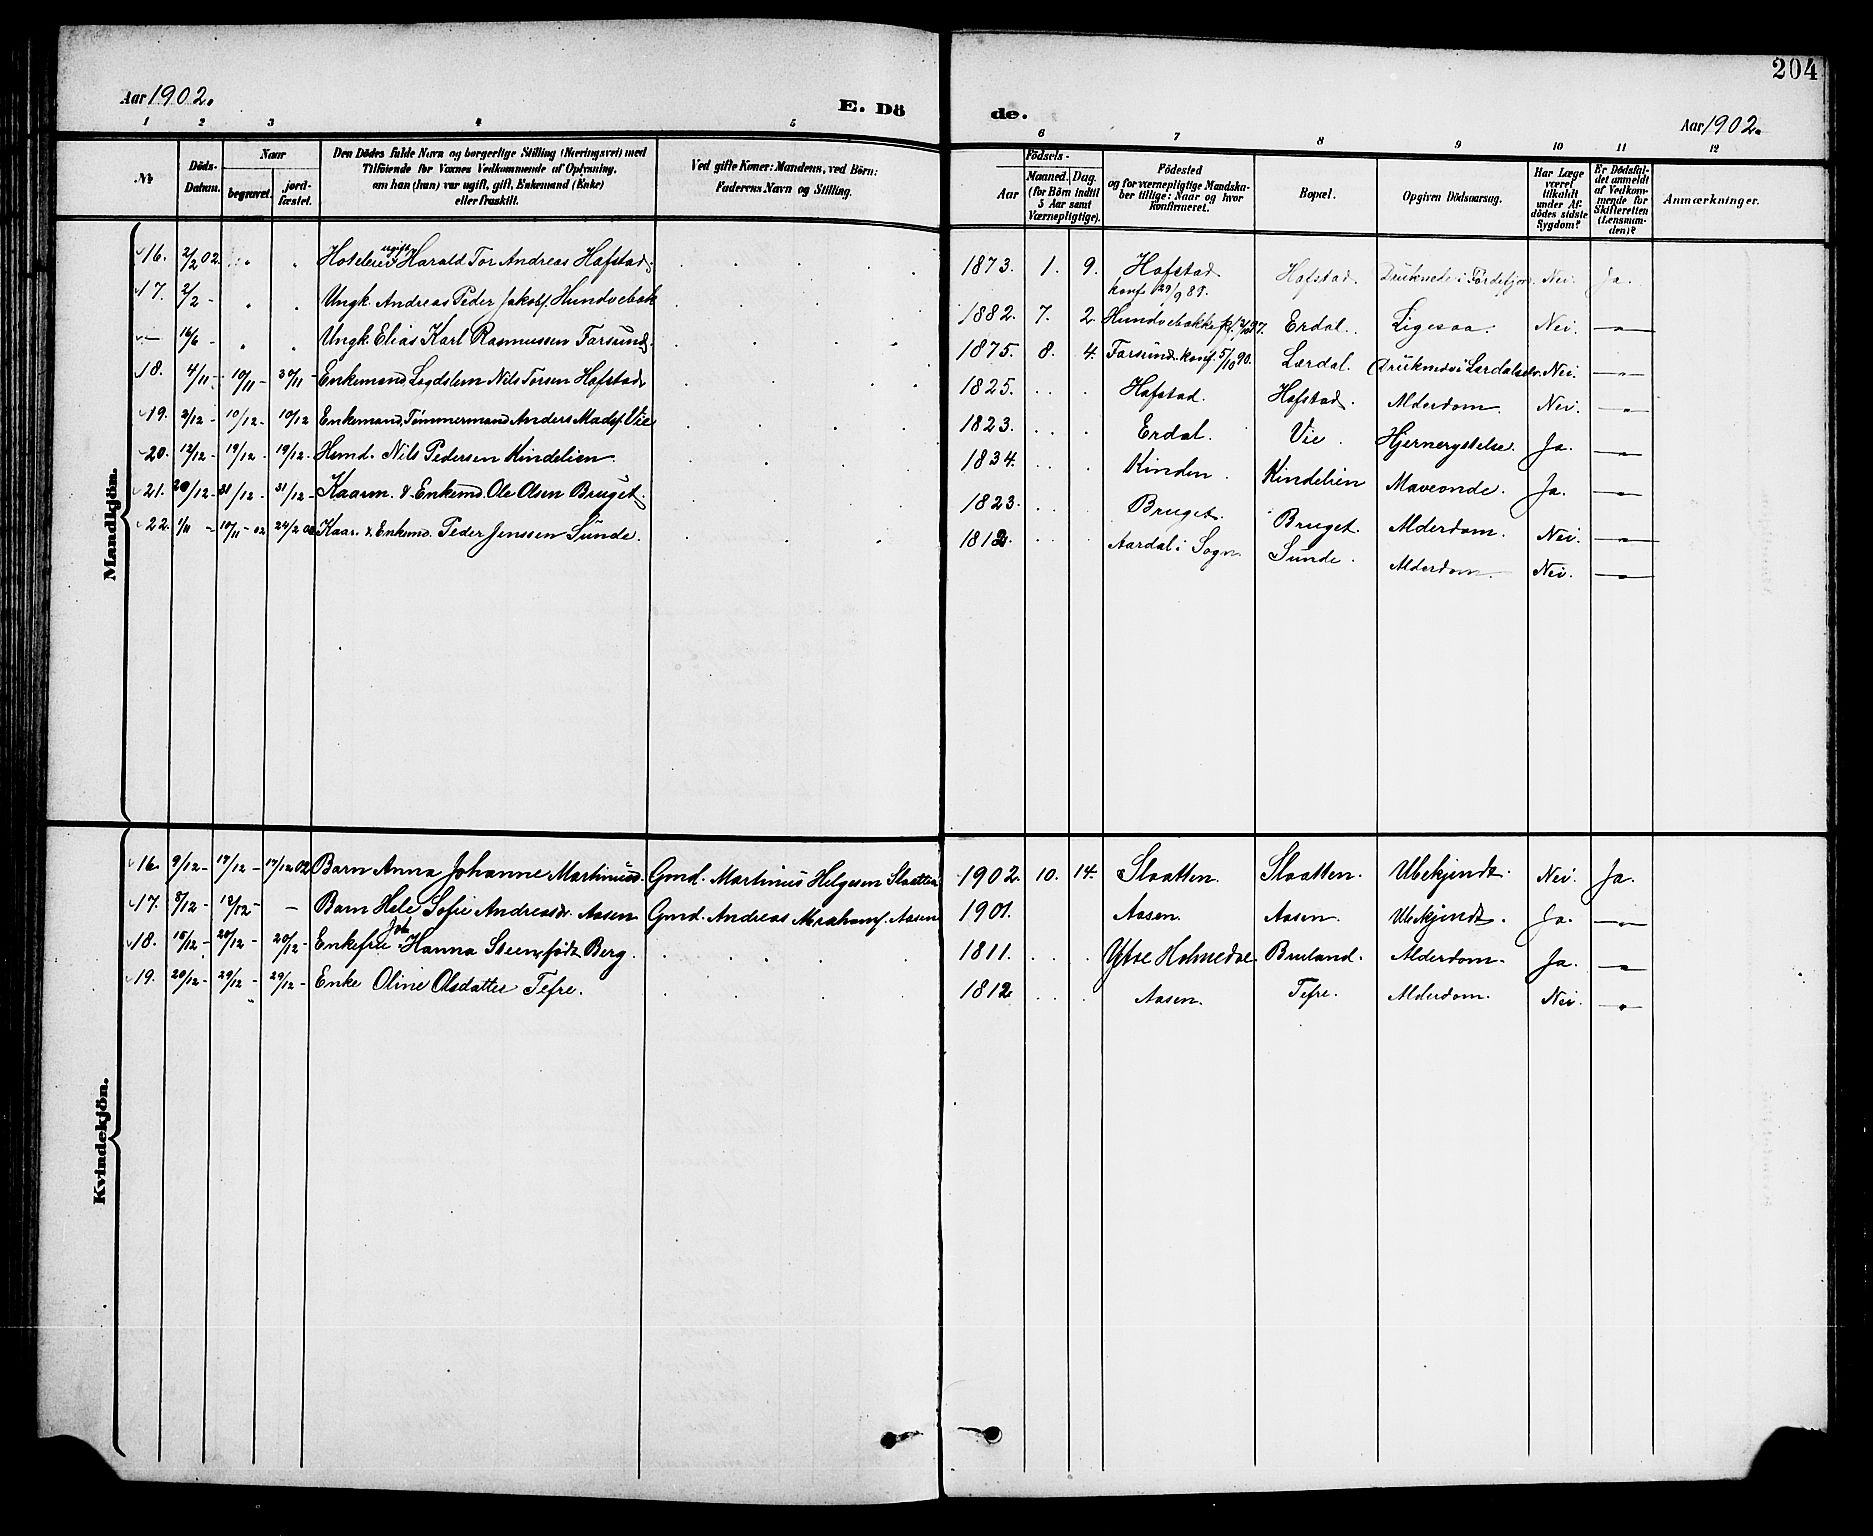 204
Aar 1902.
E. Dö
de.
Aar 1902.
1 2 3 4 5 6 7 8 9 10 11 12
№
Döds-Datum.
Naar
begravet.
jord-fæstet.
Den Dödes fulde Navn og borgerlige Stilling (Næringsvei) med
Tilföiende for Voxnes Vedkommende af Oplysning,
om han (hun) var ugift, gift, Enkemand (Enke)
eller fraskilt.
Ved gifte Koner: Mandens, ved Börn:
Faderens Navn og Stilling.
Födsels-
Aar
Maaned. Dag.
(for Börn indtil
5 Aar samt
Værnepligtige).
Födested
og for værnepligtige Mandska-
ber tillige: Naar og hvor
konfirmeret.
Bopæl.
Opgiven Dödsaarsag.
Har Læge
været
tilkaldt
under Af-
dödes sidste
Sygdom?
Er Dödsfal-
det anmeldt
af Vedkom-
mende for
Skifteretten
(Lensman-
den)?
Anmærkninger.
Mandkjön.
16. 2/2 02. " " Hoteleier ugift Harald Tor Andreas Hafstad. 1873. 1. 9. Hafstad konf. 29/9 89. Hafstad. Druknede i Førdefjord. Nei. Ja.
17. 2/2 - " " Ungk. Andreas Peder Jakobs. Hundvebak 1882. 7. 2. Hundvebakke Erdal. Ligesaa. Nei. —"—
— 16/6 - " " Ungk. Elias Karl Rasmussen Farsund. 1875. 8. 4. Farsund. konf. 5/10 90. Lærdal. Druknede i Lærdalselv. Nei. —"—
18. 4/11 - 10/11 - 30/11 - Enkemand Lægdslem Nils Torsen Hafstad 1825. Hafstad. Hafstad. Alderdom. Nei. —"—
19. 2/12 - 10/12 - 10/12 Enkemand, Tømmermand Anders Mads. Vie 1823. Erdal. Vie. Hjernerystelse. Ja. —"—
20. 12/12 - 19/12 - 19/12 - Hsmd. Nils Pedersen Kindelien. 1834. Kinden. Kindelien Maveonde. Ja. —"—
21. 20/12 - 31/12 - 31/12 - Kaarm. & Enkemd. Ole Olsen Bruget. 1823. Bruget. Bruget. Alderdom. Nei. —"—
22. 1/11 - 10/11 - 02 24/2 03 Kaar. & Enkemd. Peder Jenssen Sunde. 1812. Aardal i Sogn Sunde. Alderdom. Nei. —"—
Kvindekjön.
16. 9/12 - 17/12 - 17/12 02 Barn Anna Johanne Martinusd. Gmd. Martinus Helgesen Slaatten 1902. 10. 14. Slaatten. Slaatten. Ubekjendt. Nei. Ja.
17. 8/12 - 12/12 - — Barn Hele Sofie Andreasdr. Aasen Gmd. Andreas Abrahams. Aasen 1901. Aasen. Aasen. Ubekjendt. Ja. —"—
18. 15/12 - 20/12 - 20/12 - Enkefru Joh. Hanna Steen født Berg. 1811. Ytre Holmedal Bruland. Alderdom. Ja. —"—
19. 20/12 - 29/12 - 29/12 - Enke Oline Olsdatter Tefre. 1812 Aasen. Tefre. Alderdom. Nei. —"—